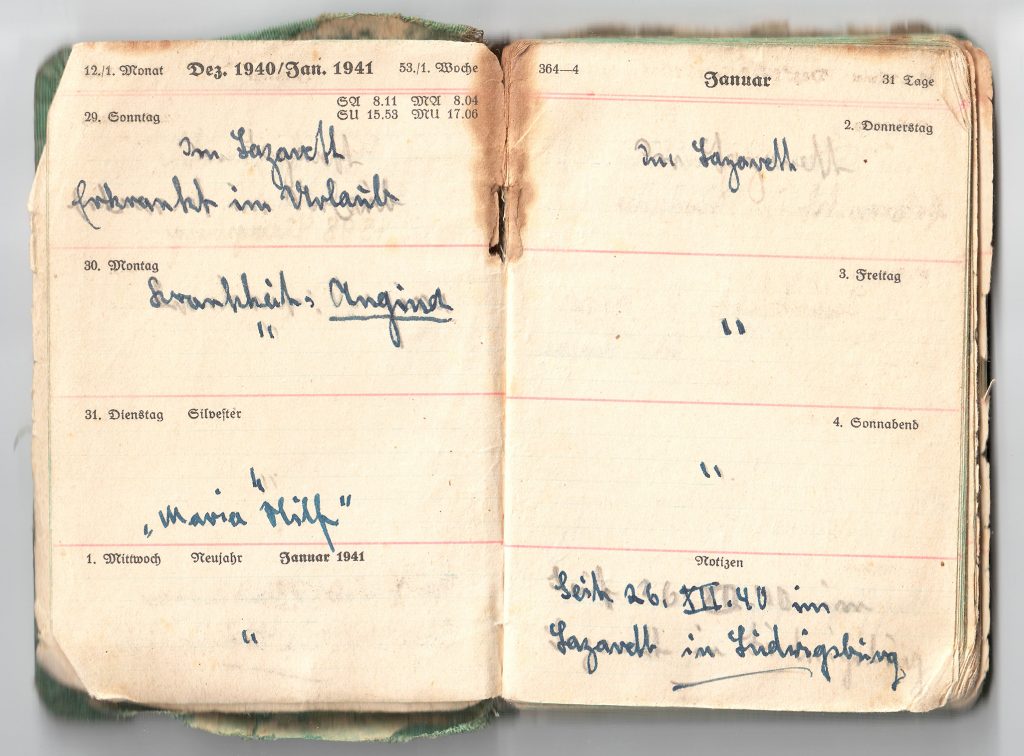 12./1. Monat Dez. 1940/Jan. 1941 53./1. Woche
29. Sonntag SA 8.11 MA 8.04
SU 15.53 MU 17.06
Im Lazarett
Erkrankt im Urlaub
30. Montag
Krankheit: Angina
"
31. Dienstag Silvester
"
„Maria Hilf"
1. Mittwoch Neujahr Januar 1941
"
364—4 Januar 31 Tage
2. Donnerstag
Im Lazarett
3. Freitag
"
4. Sonnabend
"
Notizen
Seit 26. XII. 40 im
Lazarett in Ludwigsburg